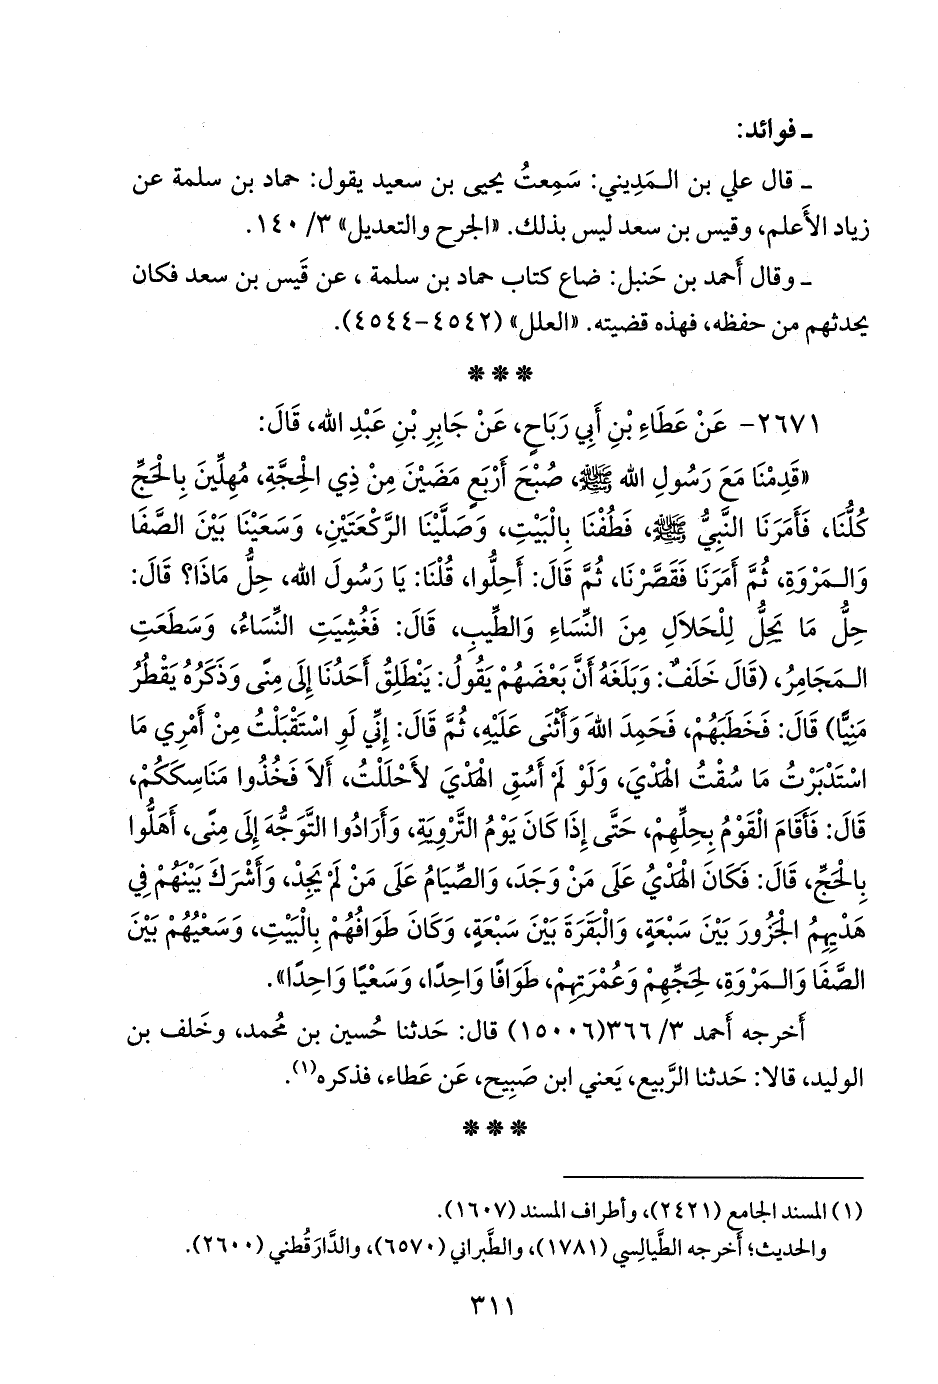 ـ فوائد:
ـ قال علي بن الـمَدِيني: سَمِعتُ يحيى بن سعيد يقول: حماد بن سلمة عن
زياد الأَعلم، وقيس بن سعد ليس بذلك. «الجرح والتعديل» ٣/ ١٤٠.
ـ وقال أَحمد بن حَنبل: ضاع كتاب حماد بن سلمة ، عن قَيس بن سعد فكان
يحدثهم من حفظه، فهذه قضيته. «العلل» (٤٥٤٢-٤٥٤٤).
* * *
٢٦٧١- عَنْ عَطَاءِ بْنِ أَبِي رَبَاحٍ، عَنْ جَابِرِ بْنِ عَبْدِ الله، قَالَ:
«قَدِمْنَا مَعَ رَسُولِ الله ﷺ، صُبْحَ أَرْبَعٍ مَضَيْنَ مِنْ ذِي الْحِجَّةِ، مُهِلِّينَ بِالْحَجِّ
كُلُّنَا، فَأَمَرَنَا النَّبِيُّ ﷺ، فَطُفْنَا بِالْبَيْتِ، وَصَلَّيْنَا الرَّكْعَتَيْنِ، وَسَعَيْنَا بَيْنَ الصَّفَا
وَالـمَرْوَةِ، ثُمَّ أَمَرَنَا فَقَصَّرْنَا، ثُمَّ قَالَ: أَحِلُّوا، قُلْنَا: يَا رَسُولَ الله، حِلُّ مَاذَا؟ قَالَ:
حِلُّ مَا يَحِلُّ لِلْحَلاَلِ مِنَ النِّسَاءِ وَالطِّيبِ، قَالَ: فَغُشِيَتِ النِّسَاءُ، وَسَطَعَتِ
الـمَجَامِرُ، (قَالَ خَلَفٌ: وَبَلَغَهُ أَنَّ بَعْضَهُمْ يَقُولُ: يَنْطَلِقُ أَحَدُنَا إِلَى مِنًى وَذَكَرُهُ يَقْطُرُ
مَنِيًّا) قَالَ: فَخَطَبَهُمْ، فَحَمِدَ اللهَ وَأَثْنَى عَلَيْهِ، ثُمَّ قَالَ: إِنِّي لَوِ اسْتَقْبَلْتُ مِنْ أَمْرِي مَا
اسْتَدْبَرْتُ مَا سُقْتُ الْهَدْيَ، وَلَوْ لَمْ أَسُقِ الْهَدْيَ لأَحْلَلْتُ، أَلاَ فَخُذُوا مَنَاسِكَكُمْ،
قَالَ: فَأَقَامَ الْقَوْمُ بِحِلِّهِمْ، حَتَّى إِذَا كَانَ يَوْمُ التَّرْوِيَةِ، وَأَرَادُوا التَّوَجُّهَ إِلَى مِنًى، أَهَلُّوا
بِالْحَجِّ، قَالَ: فَكَانَ الْهَدْيُ عَلَى مَنْ وَجَدَ، وَالصِّيَامُ عَلَى مَنْ لَمْ يَجِدْ، وَأَشْرَكَ بَيْنَهُمْ فِي
هَدْيِهِمُ الْجَزُورَ بَيْنَ سَبْعَةٍ، وَالْبَقَرَةَ بَيْنَ سَبْعَةٍ، وَكَانَ طَوَافُهُمْ بِالْبَيْتِ، وَسَعْيُهُمْ بَيْنَ
الصَّفَا وَالـمَرْوَةِ، لِحَجِّهِمْ وَعُمْرَتِهِمْ، طَوَافًا وَاحِدًا، وَسَعْيًا وَاحِدًا».
أَخرجه أَحمد ٣/ ٣٦٦(١٥٠٠٦) قال: حَدثنا حُسين بن مُحمد، وخَلف بن
الوليد، قالا: حَدثنا الرَّبيع، يَعني ابن صَبِيح، عَن عَطاء، فذكره(١).
* * *
(١) المسند الجامع (٢٤٢١)، وأطراف المسند (١٦٠٧).
والحديث؛ أَخرجه الطَّيالِسي (١٧٨١)، والطَّبراني (٦٥٧٠)، والدَّارَقُطني (٢٦٠٠).
٣١١